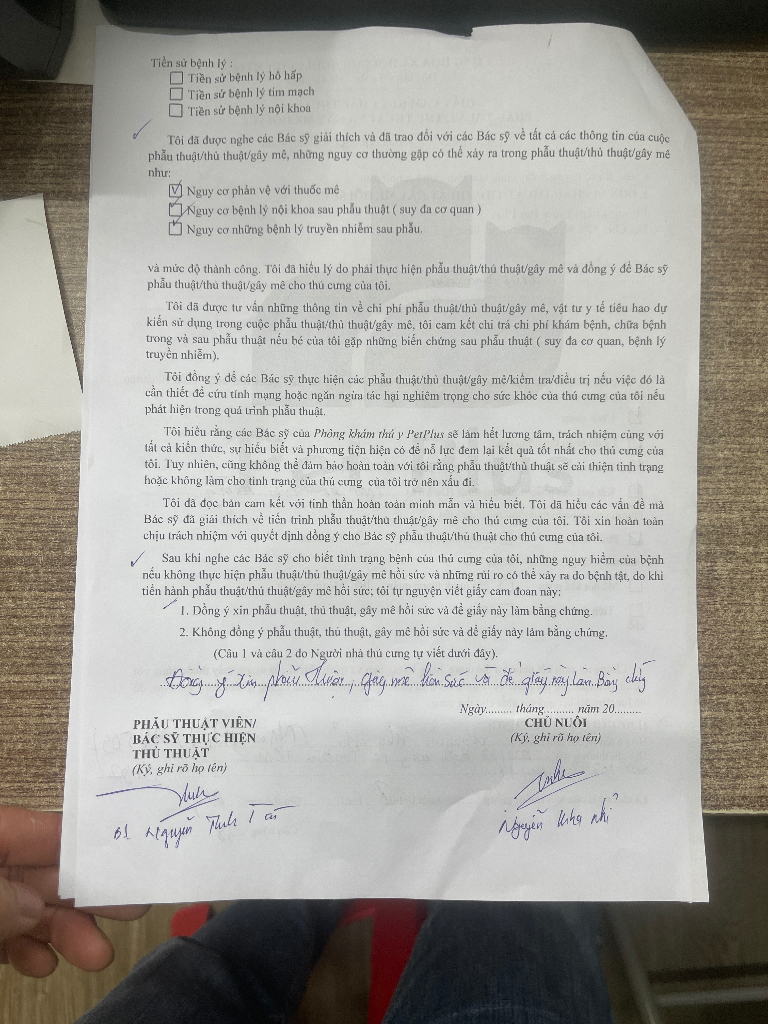 Tiền sử bệnh lý :
Tiền sử bệnh lý hô hấp
Tiền sử bệnh lý tim mạch
Tiền sử bệnh lý nội khoa
Tôi đã được nghe các Bác sỹ giải thích và đã trao đổi với các Bác sỹ về tất cả các thông tin của cuộc
phẫu thuật/thủ thuật/gây mê, những nguy cơ thường gặp có thể xảy ra trong phẫu thuật/thủ thuật/gây mê
như:
Nguy cơ phản vệ với thuốc mê
Nguy cơ bệnh lý nội khoa sau phẫu thuật ( suy đa cơ quan )
Nguy cơ những bệnh lý truyền nhiễm sau phẫu.
và mức độ thành công. Tôi đã hiểu lý do phải thực hiện phẫu thuật/thủ thuật/gây mê và đồng ý để Bác sỹ
phẫu thuật/thủ thuật/gây mê cho thú cưng của tôi.
Tôi đã được tư vấn những thông tin về chi phí phẫu thuật/thủ thuật/gây mê, vật tư y tế tiêu hao dự
kiến sử dụng trong cuộc phẫu thuật/thủ thuật/gây mê, tôi cam kết chi trả chi phí khám bệnh, chữa bệnh
trong và sau phẫu thuật nếu bé của tôi gặp những biến chứng sau phẫu thuật ( suy đa cơ quan, bệnh lý
truyền nhiễm).
Tôi đồng ý để các Bác sỹ thực hiện các phẫu thuật/thủ thuật/gây mê/kiểm tra/điều trị nếu việc đó là
cần thiết để cứu tính mạng hoặc ngăn ngừa tác hại nghiêm trọng cho sức khỏe của thú cưng của tôi nếu
phát hiện trong quá trình phẫu thuật.
Tôi hiểu rằng các Bác sỹ của Phòng khám thú y PetPlus sẽ làm hết lương tâm, trách nhiệm cùng với
tất cả kiến thức, sự hiểu biết và phương tiện hiện có để nỗ lực đem lại kết quả tốt nhất cho thú cưng của
tôi. Tuy nhiên, cũng không thể đảm bảo hoàn toàn với tôi rằng phẫu thuật/thủ thuật sẽ cải thiện tình trạng
hoặc không làm cho tình trạng của thú cưng của tôi trở nên xấu đi.
Tôi đã đọc bản cam kết với tinh thần hoàn toàn minh mẫn và hiểu biết. Tôi đã hiểu các vấn đề mà
Bác sỹ đã giải thích về tiến trình phẫu thuật/thủ thuật/gây mê cho thú cưng của tôi. Tôi xin hoàn toàn
chịu trách nhiệm với quyết định đồng ý cho Bác sỹ phẫu thuật/thủ thuật cho thú cưng của tôi.
Sau khi nghe các Bác sỹ cho biết tình trạng bệnh của thú cưng của tôi, những nguy hiểm của bệnh
nếu không thực hiện phẫu thuật/thủ thuật/gây mê hồi sức và những rủi ro có thể xảy ra do bệnh tật, do khi
tiến hành phẫu thuật/thủ thuật/gây mê hồi sức; tôi tự nguyện viết giấy cam đoan này:
1. Đồng ý xin phẫu thuật, thủ thuật, gây mê hồi sức và để giấy này làm bằng chứng.
2. Không đồng ý phẫu thuật, thủ thuật, gây mê hồi sức và để giấy này làm bằng chứng.
(Câu 1 và câu 2 do Người nhà thú cưng tự viết dưới đây).
Đồng ý xin phẫu thuật, gây mê hồi sức và để giấy này làm Bằng chứng
Ngày......... tháng.......... năm 20.........
PHẪU THUẬT VIÊN/
BÁC SỸ THỰC HIỆN
THỦ THUẬT
(Ký, ghi rõ họ tên)
CHỦ NUÔI
(Ký, ghi rõ họ tên)
Nguyễn
Nguyễn Kha Nhi